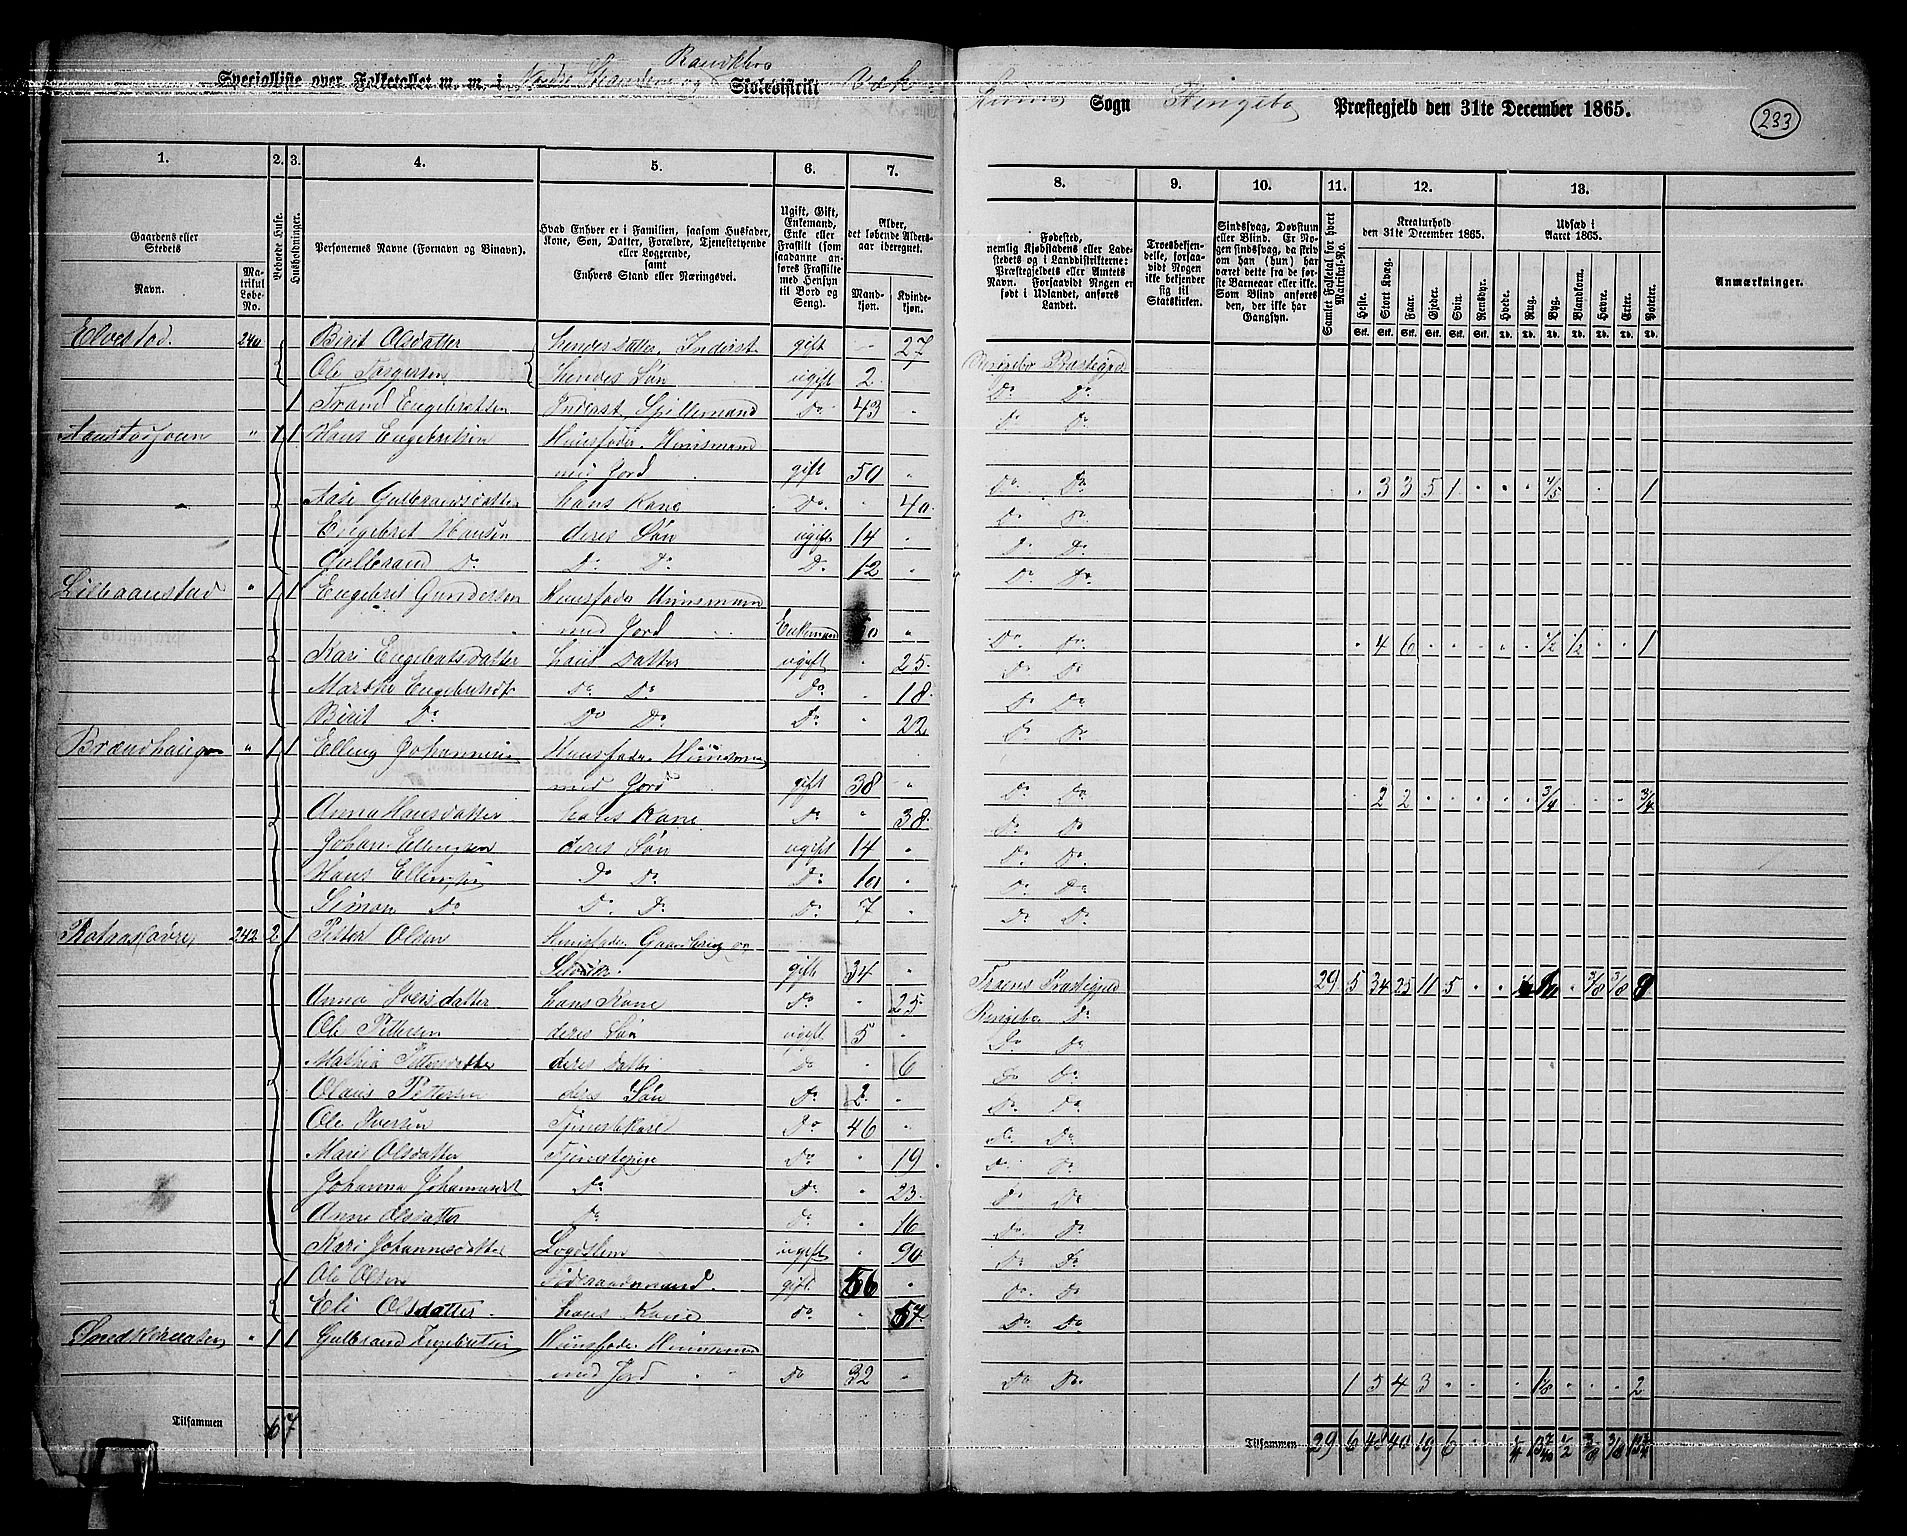 Specialliste over Folketallet m. m. i Nordre og Skoledistrikt
Sogn Ringebo Præstegjeld den 31te December 1865.
233
1. 2. 3. 4. 5. 6. 7. 8. 9. 10. 11. 12. 13.
Gaardens eller Stedets
Navn.
Matrikul Løbe-No.
Beboede Huse.
Husholdninger.
Personernes Navne (Fornavn og Binavn).
Hvad Enhver er i Familien, saasom Husfader, Kone, Søn, Datter, Forældre, Tjenestetyende eller Logerende, samt Enhvers Stand eller Næringsvei.
Ugift, Gift, Enkemand, Enke eller Fraskilt (som saadanne anføres Fraskilte med Hensyn til Bord og Seng).
Alder, det løbende Aldersaar iberegnet.
Mandkjøn.
Kvindekjøn.
Fødested, nemlig Kjøbstadens eller Ladestedets og i Landdistrikterne: Præstegjeldets eller Amtets Navn. Forsaavidt Nogen er født i Udlandet, anføres Landet.
Troesbekjendelse, forsaavidt Nogen ikke bekjender sig til Statskirken.
Sindssvag, Døvstum eller Blind. Er Nogen sindssvag, da skrives om han (hun) har været dette fra de første Barneaar eller ikke. Som Blind anføres den, der ikke har Gangsyn.
Samlet Folketal for hvert Matrikul-No.
Kreaturhold den 31te December 1865.
Heste. Stort Kvæg. Faar. Gjeder. Svin. Rensdyr.
Udsæd i Aaret 1865.
Hvede. Rug. Byg. Blandkorn. Havre. Erter. Poteter.
Anmærkninger.
Elvestad. 240 Berit Olsdatter hendes Datter, Inderst gift 27 Ringebo Præstegjeld
Ole Torgersen hendes Søn ugift 2 Do Do
1 Trond Engebretsen Inderst, Spillemand Do 43 Do Do
" 1 1 Hans Engebretsen Huusfader, Huusmand
med Jord gift 50 " Do Do 3 3 5 1 4/5 1
Aase Gulbrandsdatter hans Kone Do 40 Do Do
Engebret Hansen deres Søn ugift 14 Do Do
Gulbrand Do Do Do Do 12 Do Do
Lilleaanstad " 1 1 Engebret Gundersen Huusfader Huusmand
med Jord Enkemand " Do Do 4 6 1/2 1/2 1
Kari Engebretsdatter hans Datter ugift 25 Do Do
Marthe Engebretsdt Do Do Do 18 Do Do
Berit Do Do Do Do 22 Do Do
Brændhaugen " 1 1 Elling Johannesen Huusfader Huusmand
med Jord gift 38 " Do Do 2 2 3/4 3/4
Anna Hansdatter hans Kone Do " 38 Do Do
Johan Ellingsen deres Søn ugift 14 " Do Do
Hans Ellingsen Do Do Do 10 Do Do
Simon Do Do Do Do 7 Do Do
242 2 1 Petter Olsen Huusfader Gaardbruger og
Selveier. gift 34 " Froens Præstegjeld 29 5 34 25 11 5 3/8 3/8 9
Anna Iversdatter hans Kone Do 25 Ringebo Do
Ole Pettersen deres Søn ugift 5 Do Do
Mathea Pettersdatter deres Datter Do 6 Do Do
Olaus Pettersen deres Søn Do 2 Do Do
Ole Iversen Tjenestekarl Do 46 Do Do
Mari Olsdatter Tjenestepige Do 19 Do Do
Johanna Johannesdt Do Do 23 Do Do
Anne Olsdatter Do Do 16 Do Do
Kari Johannesdatter Logdslem ugift 90 Do Do
1 Ole Olsen Føderaadsmand gift 66 Do Do
Eli Olsdatter hans Kone Do 67 Do Do
" 1 1 Gulbrand Engebretsen Huusfader Huusmand
med Jord Do 32 Do Do 1 5 4 3 1/8 2
Tilsammen 6 7 Tilsammen 29 6 48 40 19 6